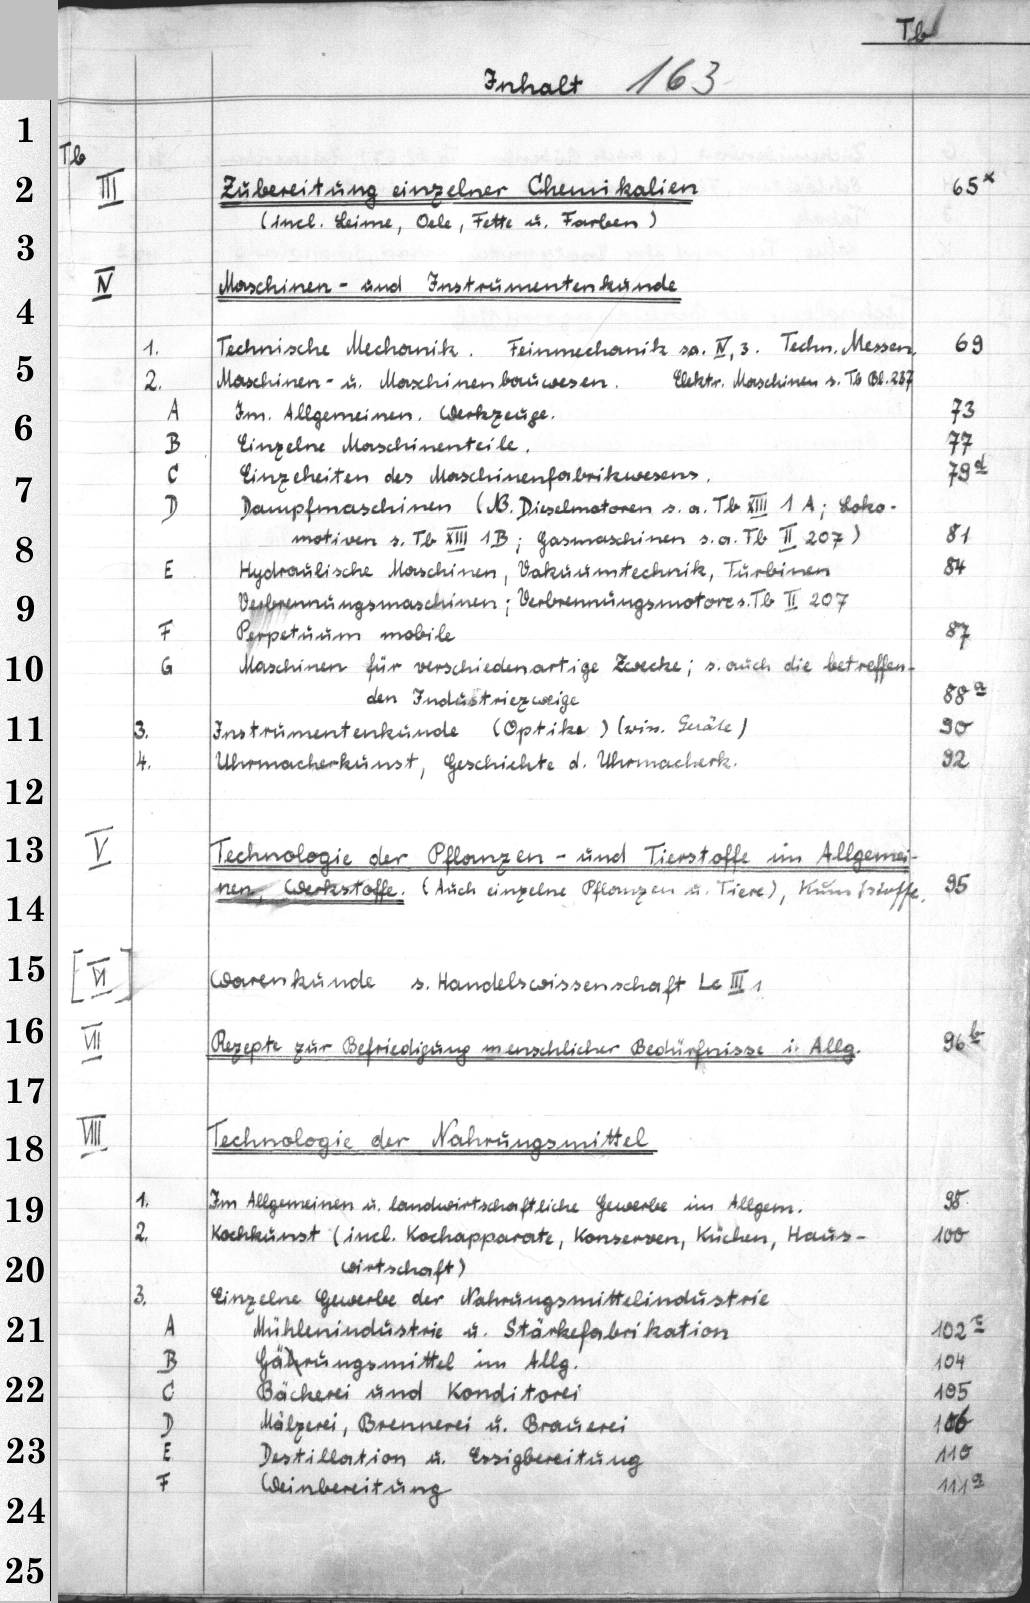 Tb
Inhalt 163
1
Tb
2 III Zubereitung einzelner Chemikalien 65x
(incl. Leime, Oele, Fette u. Farben)
3
IV Maschinen- und Instrumentenkunde
4
1. Technische Mechanik. Feinmechanik sa. IV, 3. Techn. Messen. 69
5 2. Maschinen- u. Maschinenbauwesen. Elektr. Maschinen s. Tb Bl. 287
A Im Allgemeinen. Werkzeuge. 73
6
B Einzelne Maschinenteile. 77
C Einzeheiten des Maschinenfabrikwesens. 79d
7
D Dampfmaschinen (NB. Dieselmotoren s. a. Tb XIII 1 A; Loko-
motiven s. Tb XIII 1B; Gasmaschinen s.a. Tb II 207) 81
8
E Hydraulische Maschinen, Vakuumtechnik, Turbinen 84
Verbrennungsmaschinen; Verbrennungsmotore s. Tb II 207
9
F Perpetuum mobile 87
10 G Maschinen für verschiedenartige Zwecke; s. auch die betreffen-
den Industriezweige 88a
11 3. Instrumentenkunde (Optike) (wiss. Geräte) 90
4. Uhrmacherkunst, Geschichte d. Uhrmacherk. 92
12
13 V Technologie der Pflanzen- und Tierstoffe im Allgemei-
nen, Werkstoffe. (Auch einzelne Pflanzen u. Tiere), Kunststoffe. 95
14
15 [VI] Warenkunde s. Handelswissenschaft Lc III 1
16 VII Rezepte zur Befriedigung menschlicher Bedürfnisse i. Allg. 96b
17
18 VIII Technologie der Nahrungsmittel
19 1. Im Allgemeinen u. landwirtschaftliche Gewerbe im Allgem. 98
2. Kochkunst (incl. Kochapparate, Konserven, Küchen, Haus- 100
20 wirtschaft)
3. Einzelne Gewerbe der Nahrungsmittelindustrie
21 A Mühlenindustrie u. Stärkefabrikation 102c
B Gährungsmittel im Allg. 104
22 C Bäckerei und Konditorei 105
D Mälzerei, Brennerei u. Brauerei 106
23 E Destillation u. Essigbereitung 110
F Weinbereitung 111a
24
25